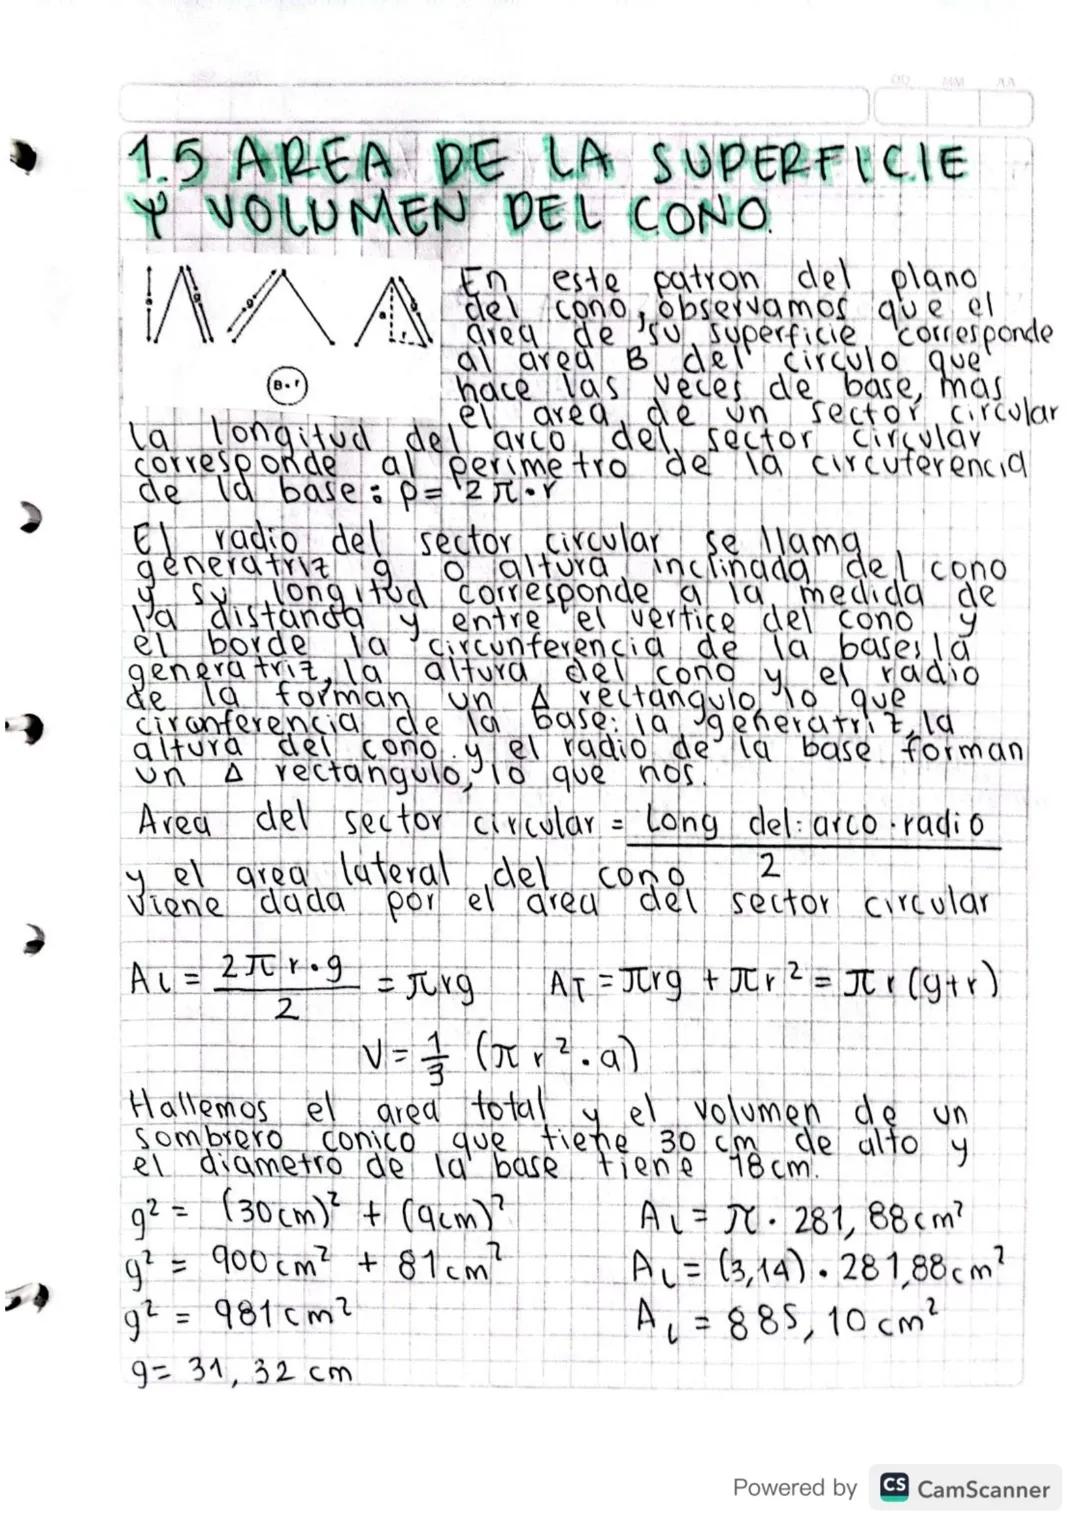 1.5 AREA DE LA SUPERFICIE
Y VOLUMEN DEL CONO.
En este patron del plano
del cono, observamos que el
area de su superficie corresponde
al area B del circulo que
hace las veces de base, mas
el area de un sector circular
B•r
la longitud del arco del sector circular
corresponde al perimetro de la circuferencia
de la base: p= 2π•r
El radio del sector circular se llama
generatriz g o altura inclinada del cono
y su longitud corresponde a la medida de
la distancia y entre el vertice del cono y
el borde la circunferencia de la bases la
generatriz, la altura del cono y el radio
de la forman un Δ rectangulo, lo que
ciranferencia de la base: la generatriz, la
altura del cono y el radio de la base forman
un Δ rectangulo, lo que nos.
Area del sector circular = Long del: arco · radio
2
y el area lateral del cono
viene dada por el area del sector circular
AL = 2πr•g / 2 = πrg AT = πrg + πr² = πr(g+r)
V = 1/3 (πr²•a)
Hallemos el area total y el volumen de un
sombrero conico que tiene 30 cm de alto y
el diametro de la base tiene 18cm.
g² = (30cm)² + (9cm)² AL = π · 281,88cm²
g² = 900cm² + 81cm² AL = (3,14) • 281,88cm²
g² = 981cm² AL = 885,10cm²
g = 31,32 cm
Powered by CS CamScanner